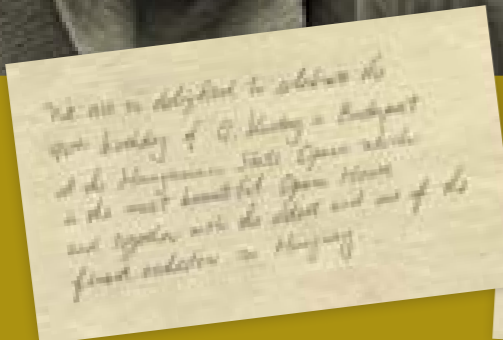 We are so delighted to celebrate the
birthday of G. in Budapest
at the Hungarian State Opera which
is the most beautiful Opera House
and together with the oldest and one of the
finest orchestra in Hungary